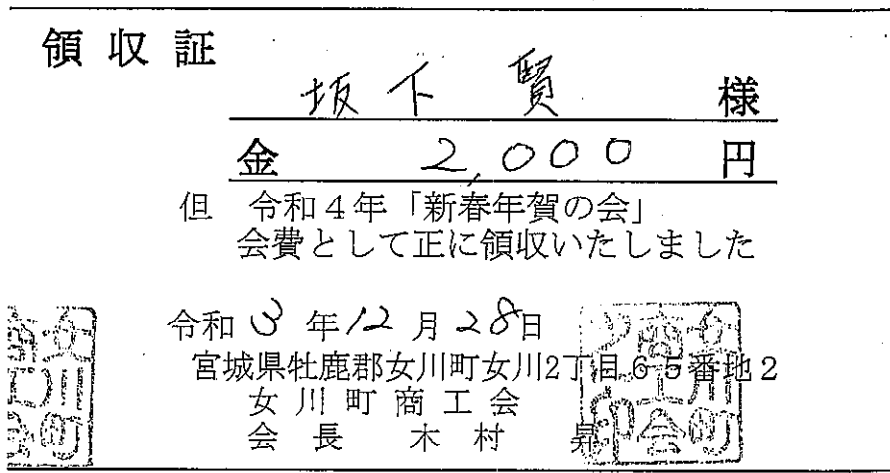 領収証
坂下 賢 様
金 2,000 円
但 令和4年「新春年賀の会」
会費として正に領収いたしました
令和 3 年 12 月 28日
宮城県牡鹿郡女川町女川2丁目65番地2
女川町商工会
会長 木村 昇
女川町
商工
会印